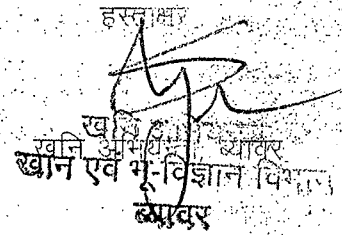 हस्ताक्षर
ख
खनि अभि ब्यावर
खान एवं भू-विज्ञान विभाग
ब्यावर